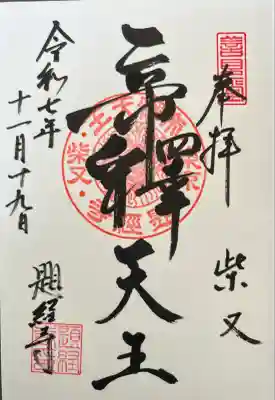 奉拝
柴又
帝釋天王
柴又
令和七年
十一月十九日
題経寺